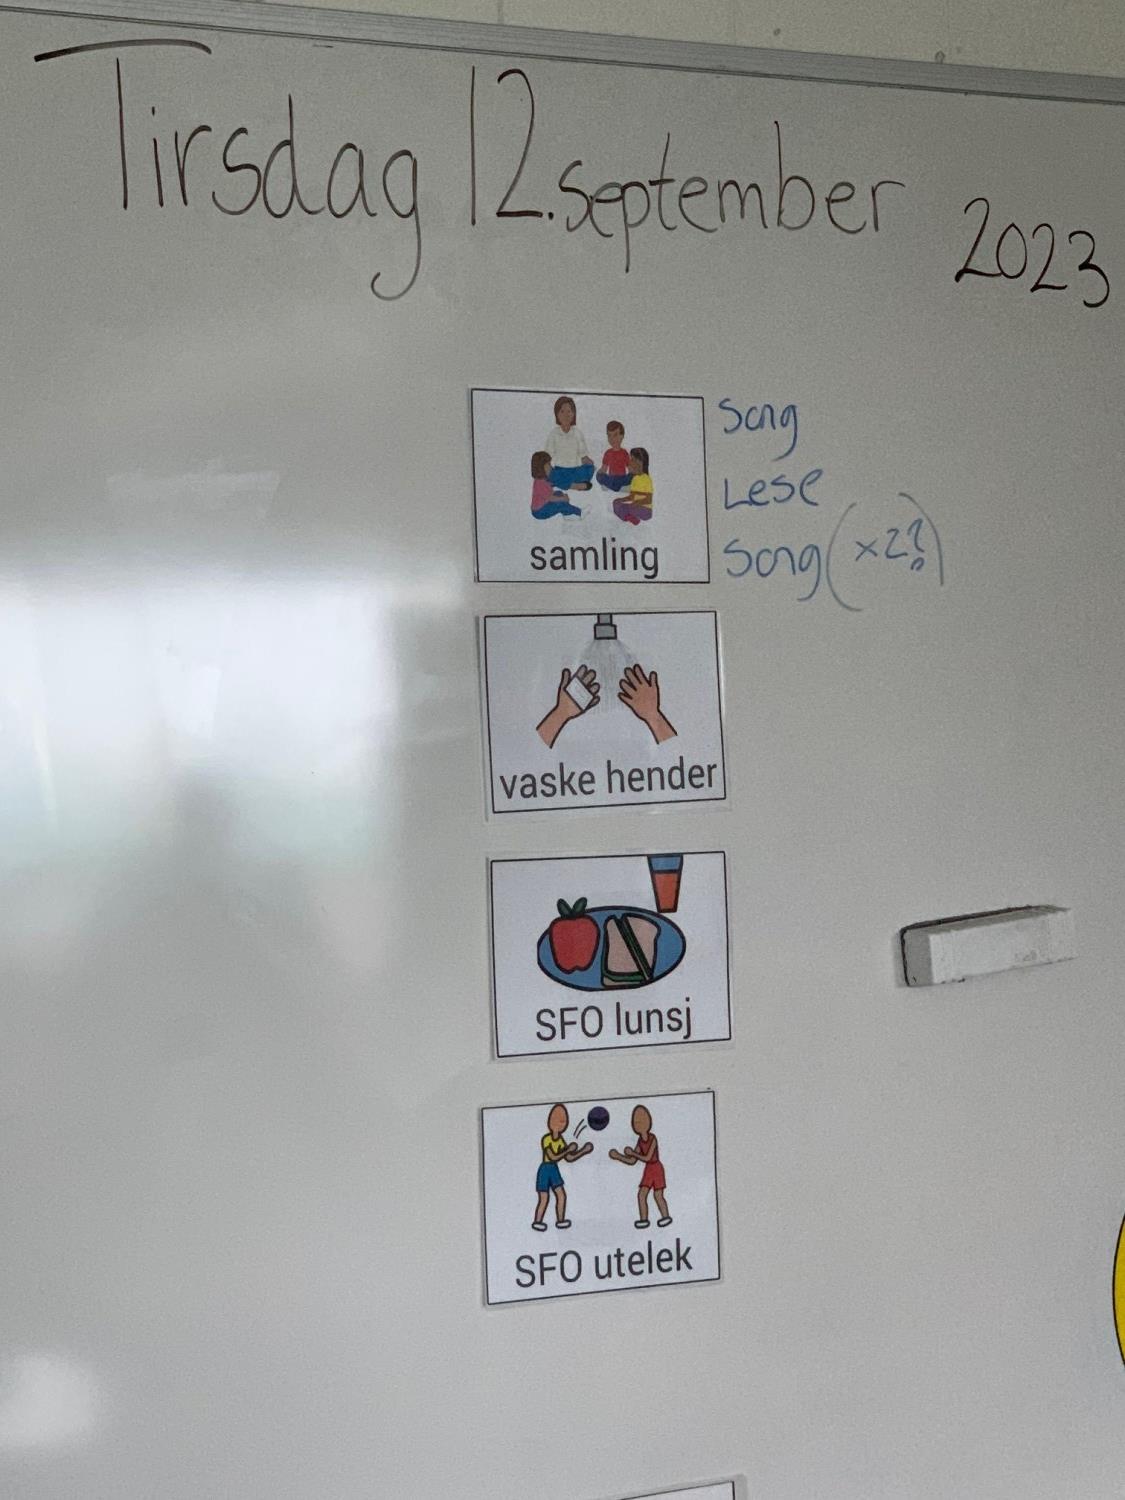 Tirsdag 12. september 2023
samling
Song
Lese
Song (x2?)
vaske hender
SFO lunsj
SFO utelek